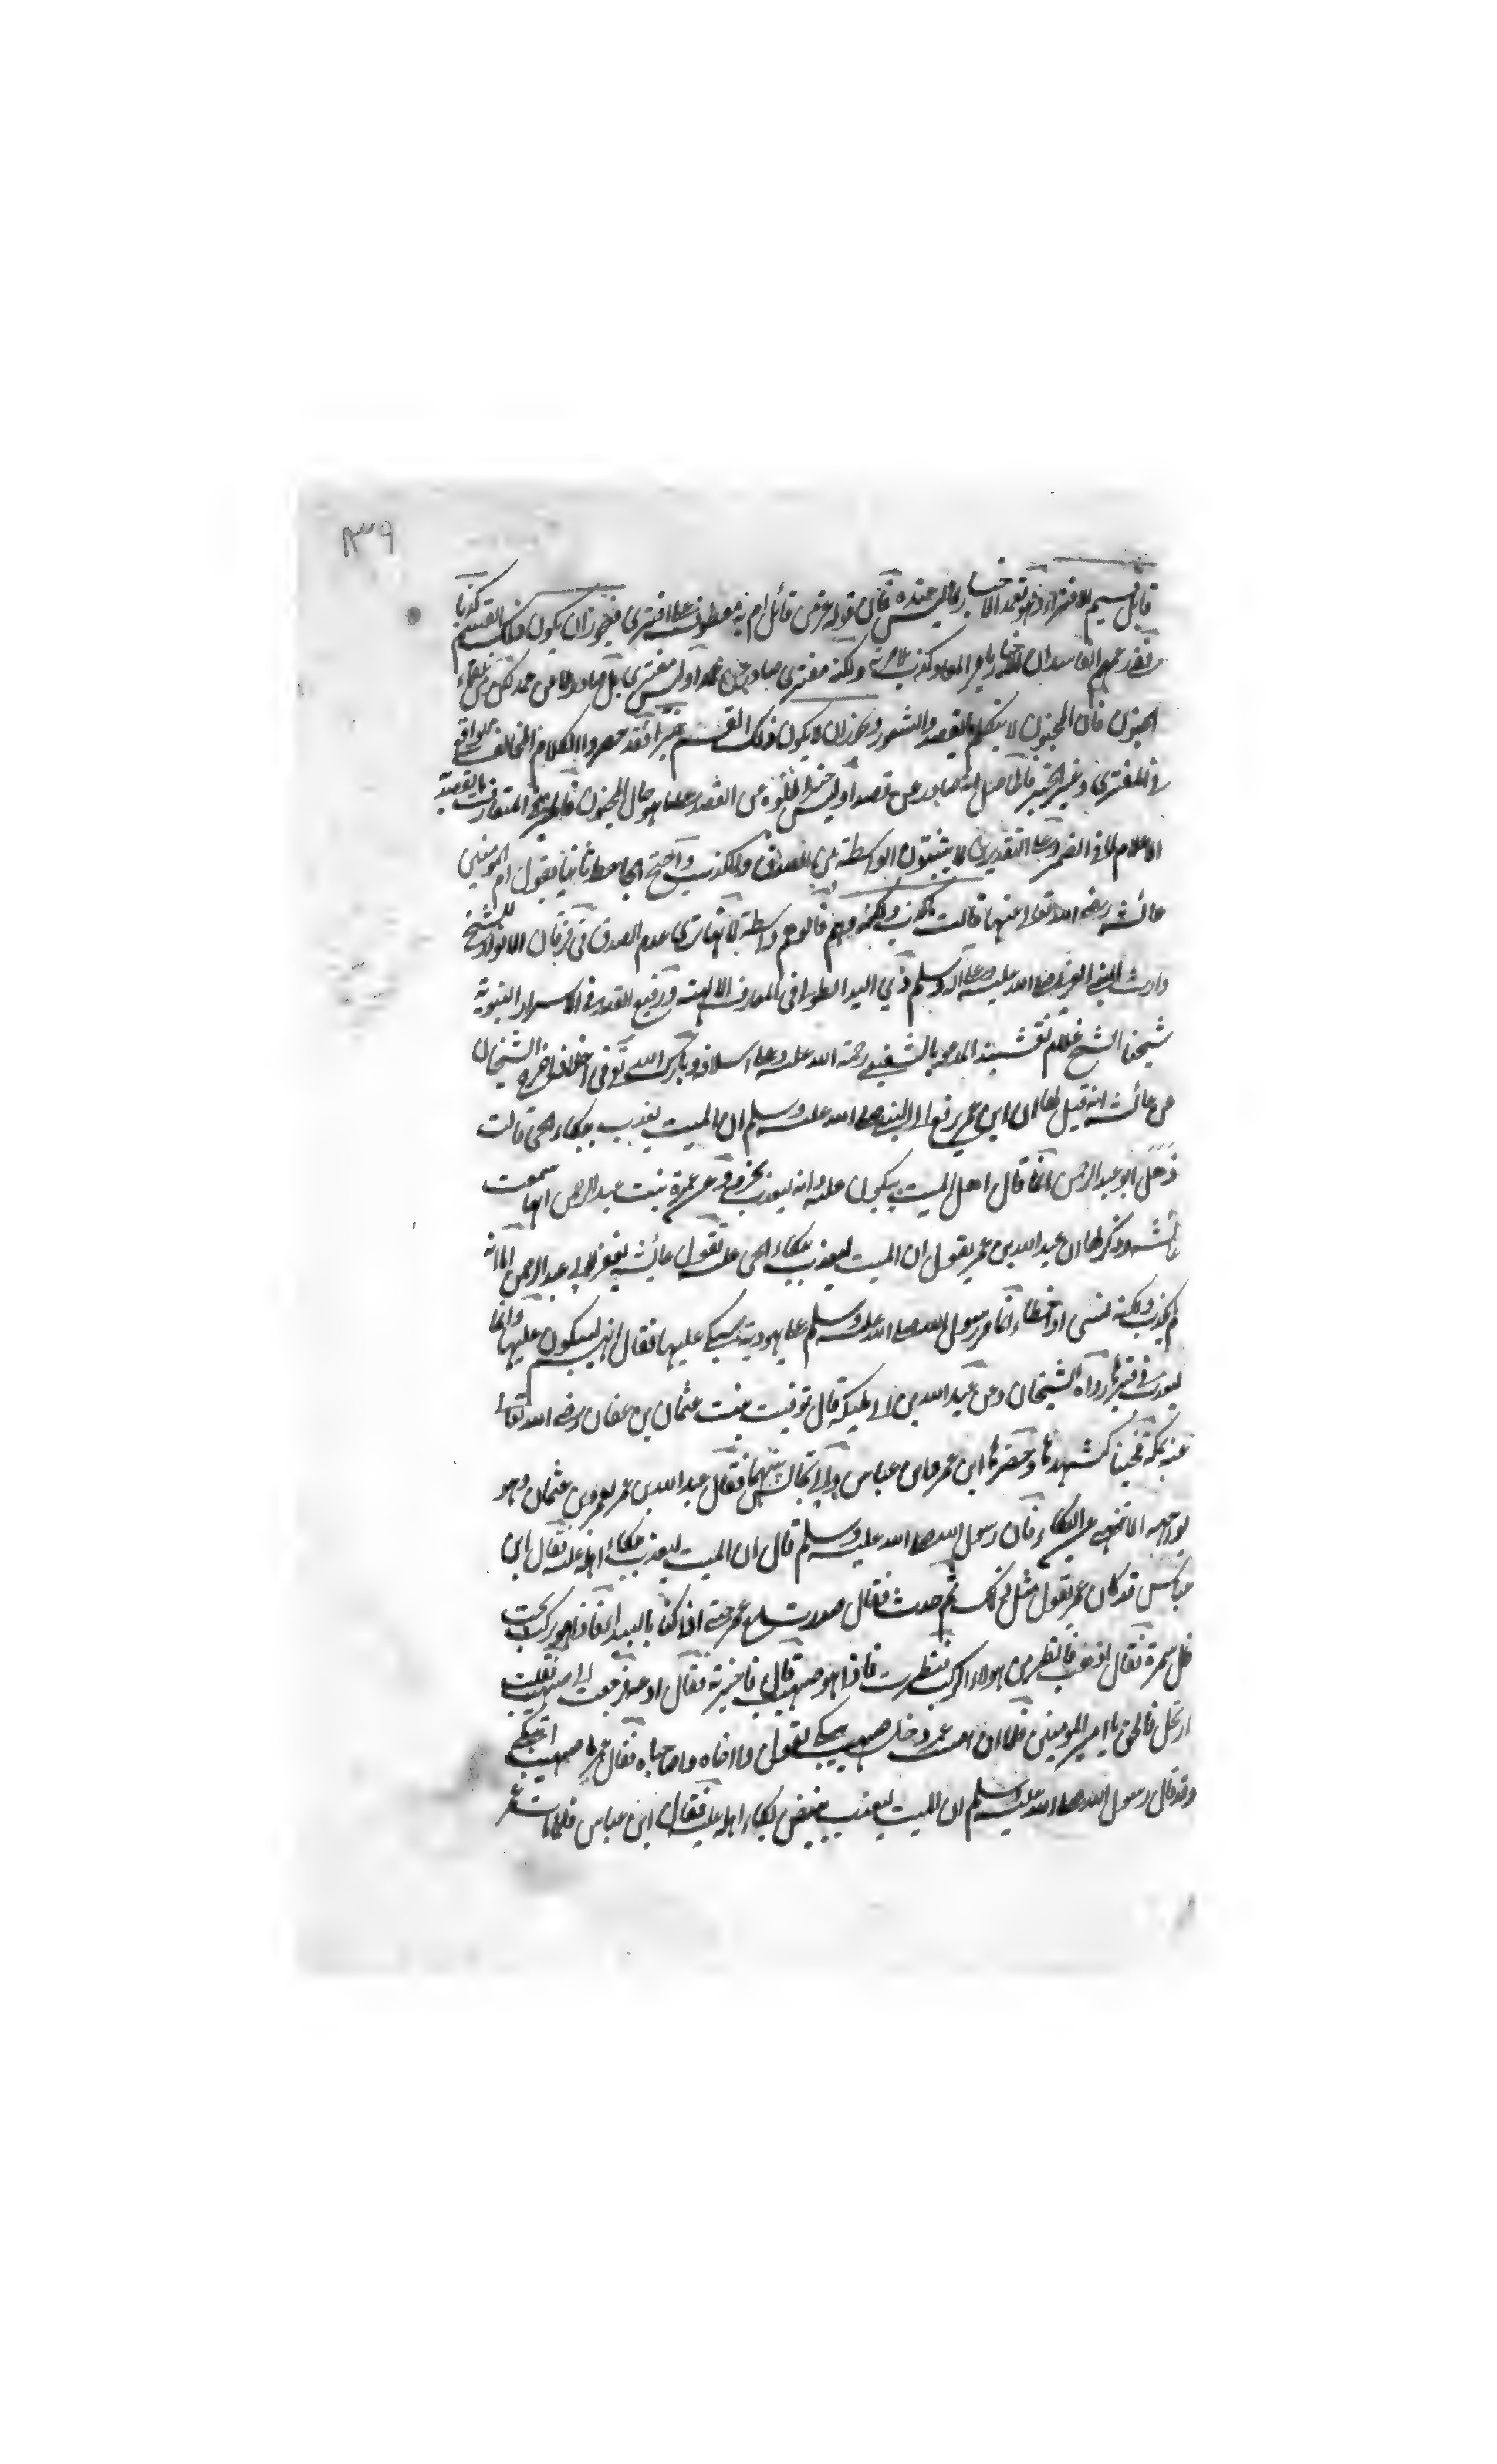 ١٣٩
قائل قسيم الافتراء وهو تعمد الاخبار بما ليس عنده فان قوله عز من قائل ام به معطوف على افترى فيجوز ان يكون ذلك القسيم كذبا
ان الاخبار ولكنه مفترى صادر عن عمد او ليس مفترى بل صادر لا من عمد
الجنون فان المجنون لا يتكلم بالقصد والشعور ويجوز ان لا يكون ذلك القسيم خبرا فقد حصروا الكلام المخالف للواقع
في المفترى وغير الخبر فالحاصل انه صادر عن قصد او ليس خبرا لخلوه عن القصد على ما هو حال المجنون المتعارف بالقصد
الاعلام لما في الضمير وعلى التقديرين لا يثبتون الواسطة بين الصدق والكذب واحتج الجاحظ ثانيا بقول ام المومنين
عائشة رضي الله تعالى عنها قالت ما كذب ولكنه وهم فالوهم واسطة عدم الصدق في فرقان الانوار للشيخ
وارث النبي صلى الله عليه وعلى آله وسلم ذي اليد الطولى في المعارف الالهية ورفيع القدر في الاسرار النبوية
شيخنا الشيخ غلام نقشبند المدعو بالشفيع رحمة الله عليه وعلى اسلافه وبارك الله تع في اخلافه اخرج الشيخان
عن عائشة انه قيل لها ان ابن عمر يرفع الى النبي صلى الله عليه وسلم ان الميت يعذب ببكاء حي قالت
ذهل ابو عبد الرحمن انما قال اهل الميت يبكون عليه وانه ليعذب بجرمه وعن عمرة بنت عبد الرحمن انها سمعت
عائشة وذكر لها ان عبد الله بن عمر يقول ان الميت ليعذب ببكاء الحي عليه تقول عائشة يغفر لابي عبد الرحمن اما انه
لم يكذب ولكنه نسي او اخطاء انما مر رسول الله صلى الله عليه وسلم على يهودية يبكى عليها فقال انهم ليبكون عليها وانها
ليعذب في قبرها رواه الشيخان وعن عبد الله بن ابي مليكة قال توفيت بنت عثمان بن عفان رضي الله تعالى
عنه بمكة فجئنا لنشهدها وحضرها ابن عمر وابن عباس واني لجالس بينهما فقال عبد الله بن عمر لعمرو بن عثمان وهو
يواجهه الا تنهى عن البكاء فان رسول الله صلى الله عليه وسلم قال ان الميت ليعذب ببكاء اهله عليه فقال ابن
عباس قد كان عمر يقول مثل ذلك ثم حدث فقال صدرت مع عمر حتى اذا كنا بالبيداء فاذا هو بركب تحت
ظل سمرة فقال اذهب فانظر من هولاء الركب فنظرت فاذا هو صهيب قال فاخبرته فقال ادعه فرجعت الى صهيب فقلت
ارتحل فالحق يا امير المومنين فلما ان اصيب عمر دخل صهيب يبكي يقول وا اخاه وا صاحباه فقال عمر يا صهيب اتبكي
وقد قال رسول الله صلى الله عليه وسلم ان الميت ليعذب ببعض بكاء اهله عليه فقال ابن عباس فلما مات عمر